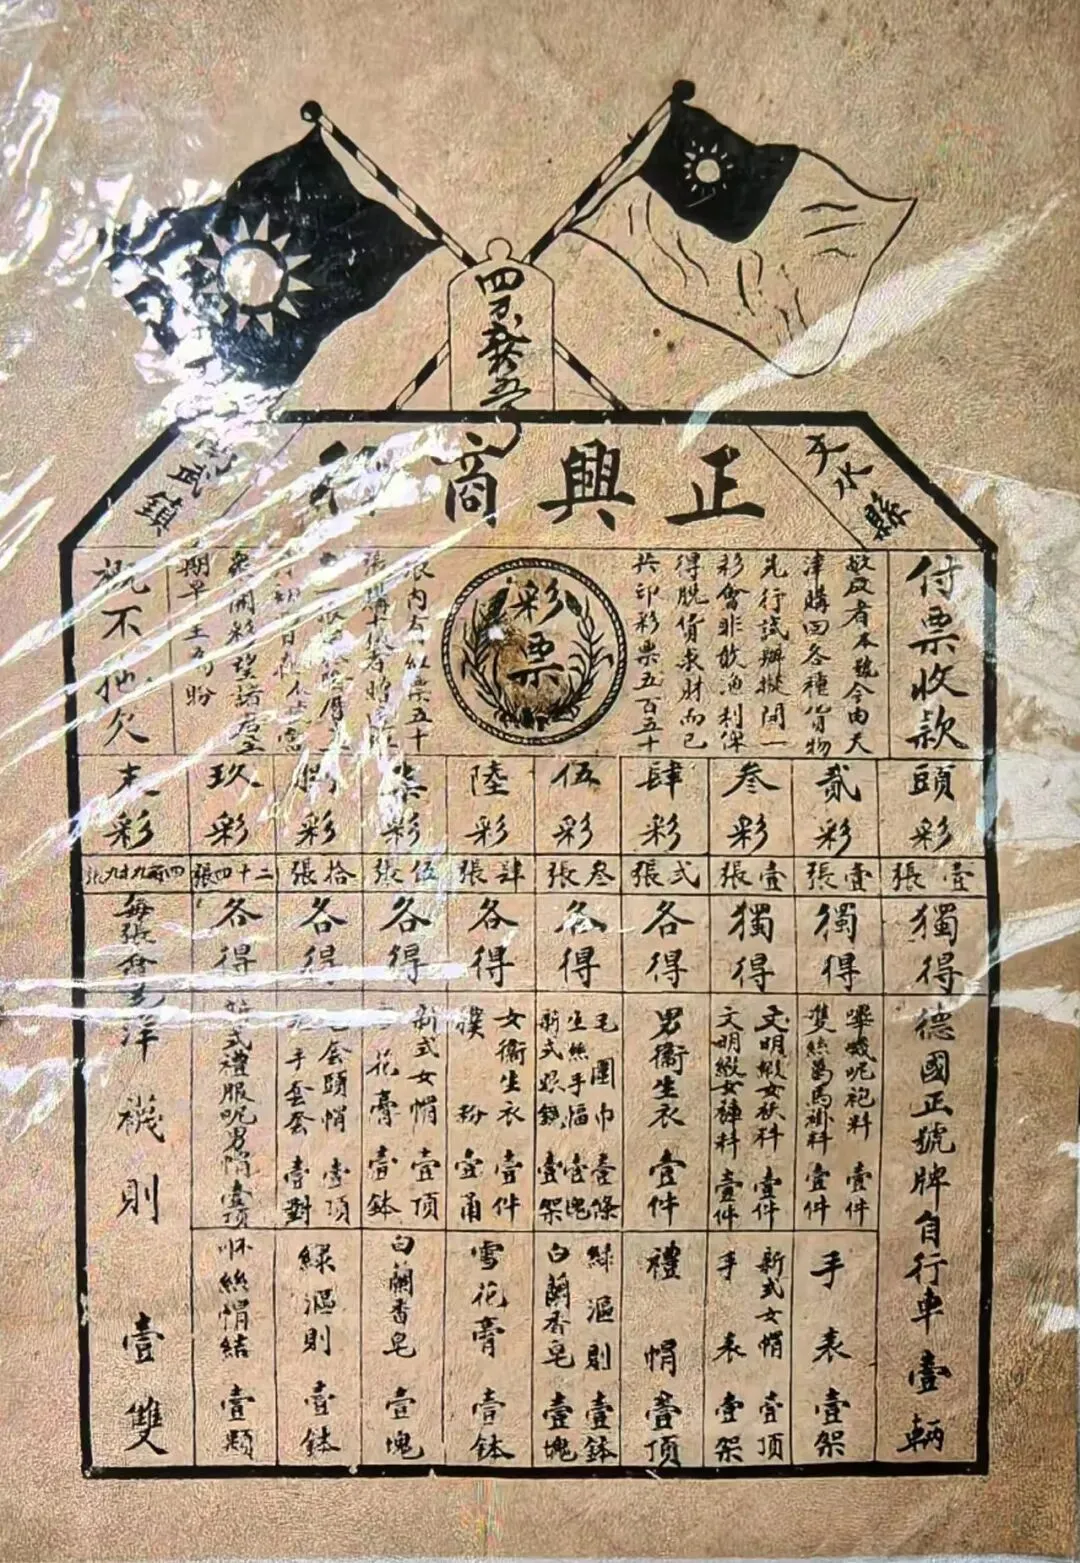 四万
五
正興商
天水縣
武鎮
付票收款
敬啟者本號今由天
津購回各種貨物
先行試辦擬開一
彩會非敢漁利俾
得脫貨求財而已
共印彩票五百五十
彩票
張內有紅票五十
開彩望諸君
期早 盼
概不拖欠
頭彩
壹張
獨得
德國正號牌自行車壹輛
貳彩
壹張
獨得
嗶嘰呢袍料壹件
雙絲葛馬褂料壹件
手表壹架
叁彩
壹張
獨得
文明緞女袄料壹件
文明緞女褲料壹件
新式女帽壹頂
手表壹架
肆彩
弍張
各得
男衛生衣壹件
禮帽壹頂
伍彩
叁張
各得
毛圍巾壹條
生絲手幅壹塊
新式眼鏡壹架
綠漚則壹鉢
白蘭香皂壹塊
陸彩
肆張
各得
女衛生衣壹件
撲粉壹甬
雪花膏壹鉢
柒彩
伍張
各得
新式女帽壹頂
雪花膏壹鉢
白蘭香皂壹塊
捌彩
拾張
各得
套頭帽壹頂
手套套壹對
綠漚則壹鉢
玖彩
二十四張
各得
新式禮服呢男帽壹頂
怀絲帽結壹顆
末彩
四百九十九張
每張 洋襪則壹雙